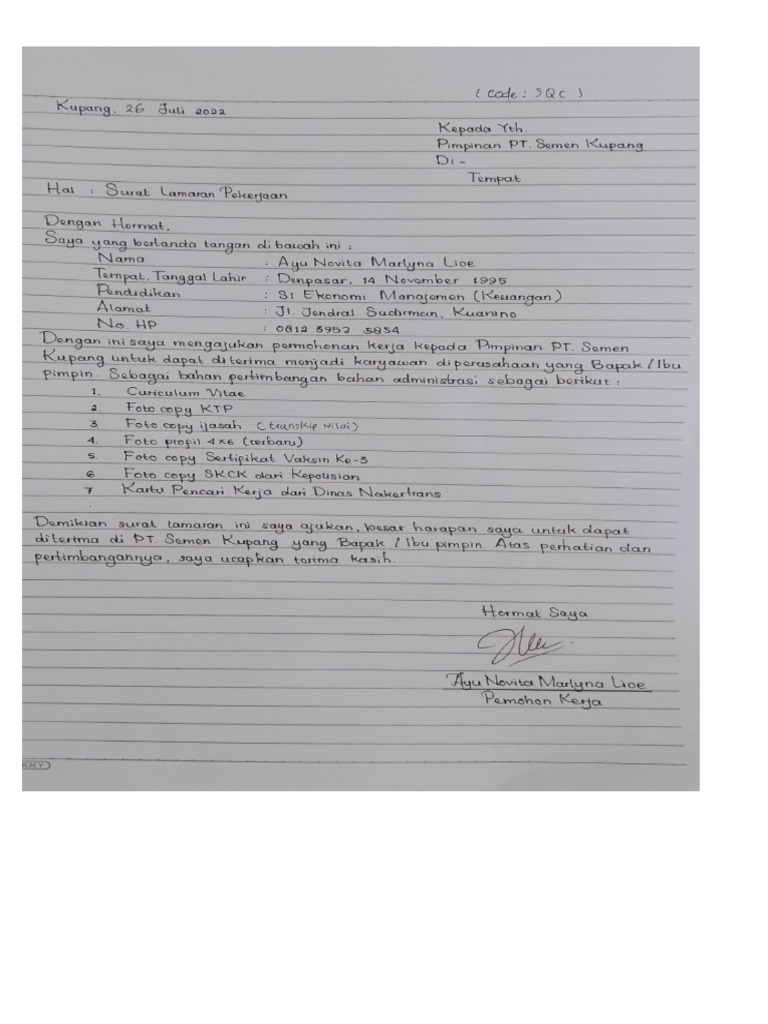 ( Code : SQC )
Kupang, 26 Juli 2022
Kepada Yth.
Pimpinan PT. Semen Kupang
Di -
Tempat
Hal : Surat Lamaran Pekerjaan
Dengan Hormat,
Saya yang bertanda tangan di bawah ini :
Nama : Ayu Novita Marlyna Lioe
Tempat, Tanggal Lahir : Denpasar, 14 November 1995
Pendidikan : S1 Ekonomi Manajemen (Keuangan)
Alamat : Jl. Jendral Sudirman, Kuanino
No. HP : 0812 3957 5834
Dengan ini saya mengajukan permohonan kerja kepada Pimpinan PT. Semen
Kupang untuk dapat diterima menjadi karyawan diperasahaan yang Bapak / Ibu
pimpin. Sebagai bahan pertimbangan bahan administrasi sebagai berikut :
1. Curiculum Vitae
2. Foto copy KTP
3. Foto copy ijasah (transkip Nilai)
4. Foto profil 4x6 (terbaru)
5. Foto copy Sertifikat Vaksin Ke-3
6 Foto copy SKCK dari Kepolisian
7 Kartu Pencari Kerja dari Dinas Nakertrans
Demikian surat lamaran ini saya ajukan, besar harapan saya untuk dapat
diterima di PT. Semen Kupang yang Bapak / Ibu pimpin. Atas perhatian dan
pertimbangannya, saya ucapkan terima kasih.
Hormat Saya
Ayu Novita Marlyna Lioe
Pemohon Kerja
KIKY